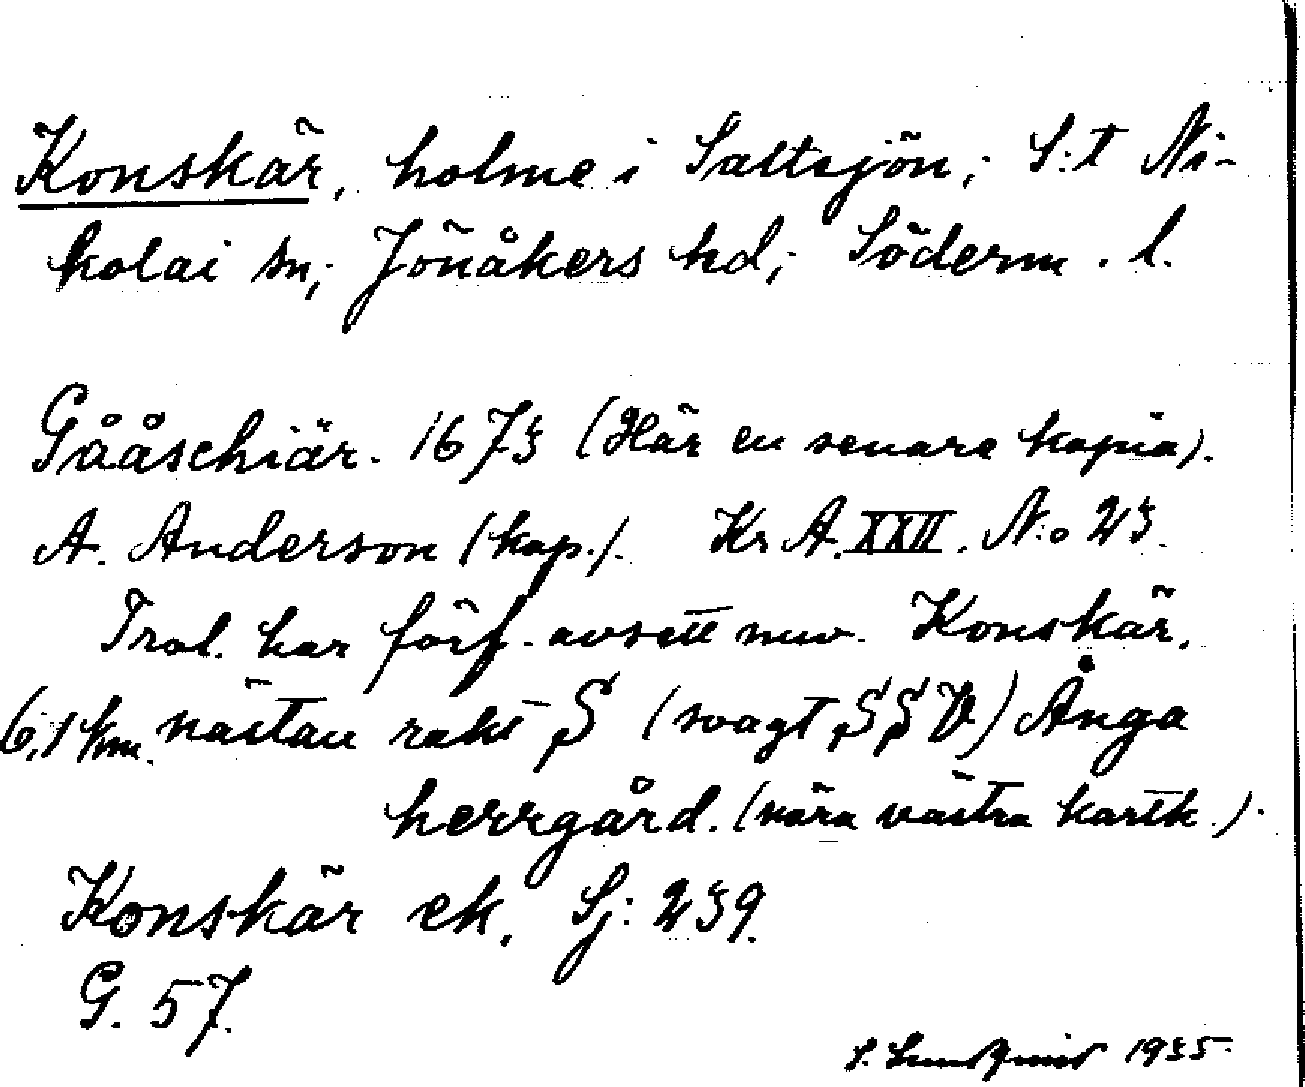 Konskär, holme i Saltsjön; S:t Ni-
kolai sn; Jönåkers hd; Söderm. l.
Gååschiär. 1673 (Här en senare kopia).
A. Anderson (kap.). Kr A. XXII. N:o 23.
Trol. har förf. avsett nuv. Konskär.
6,1 km. nästan rakt S (svagt SSV) Ånga
herrgård. (nära västra kartk.).
Konskär ek. Sj: 239.
G. 57.
S. Lundqvist 1935.